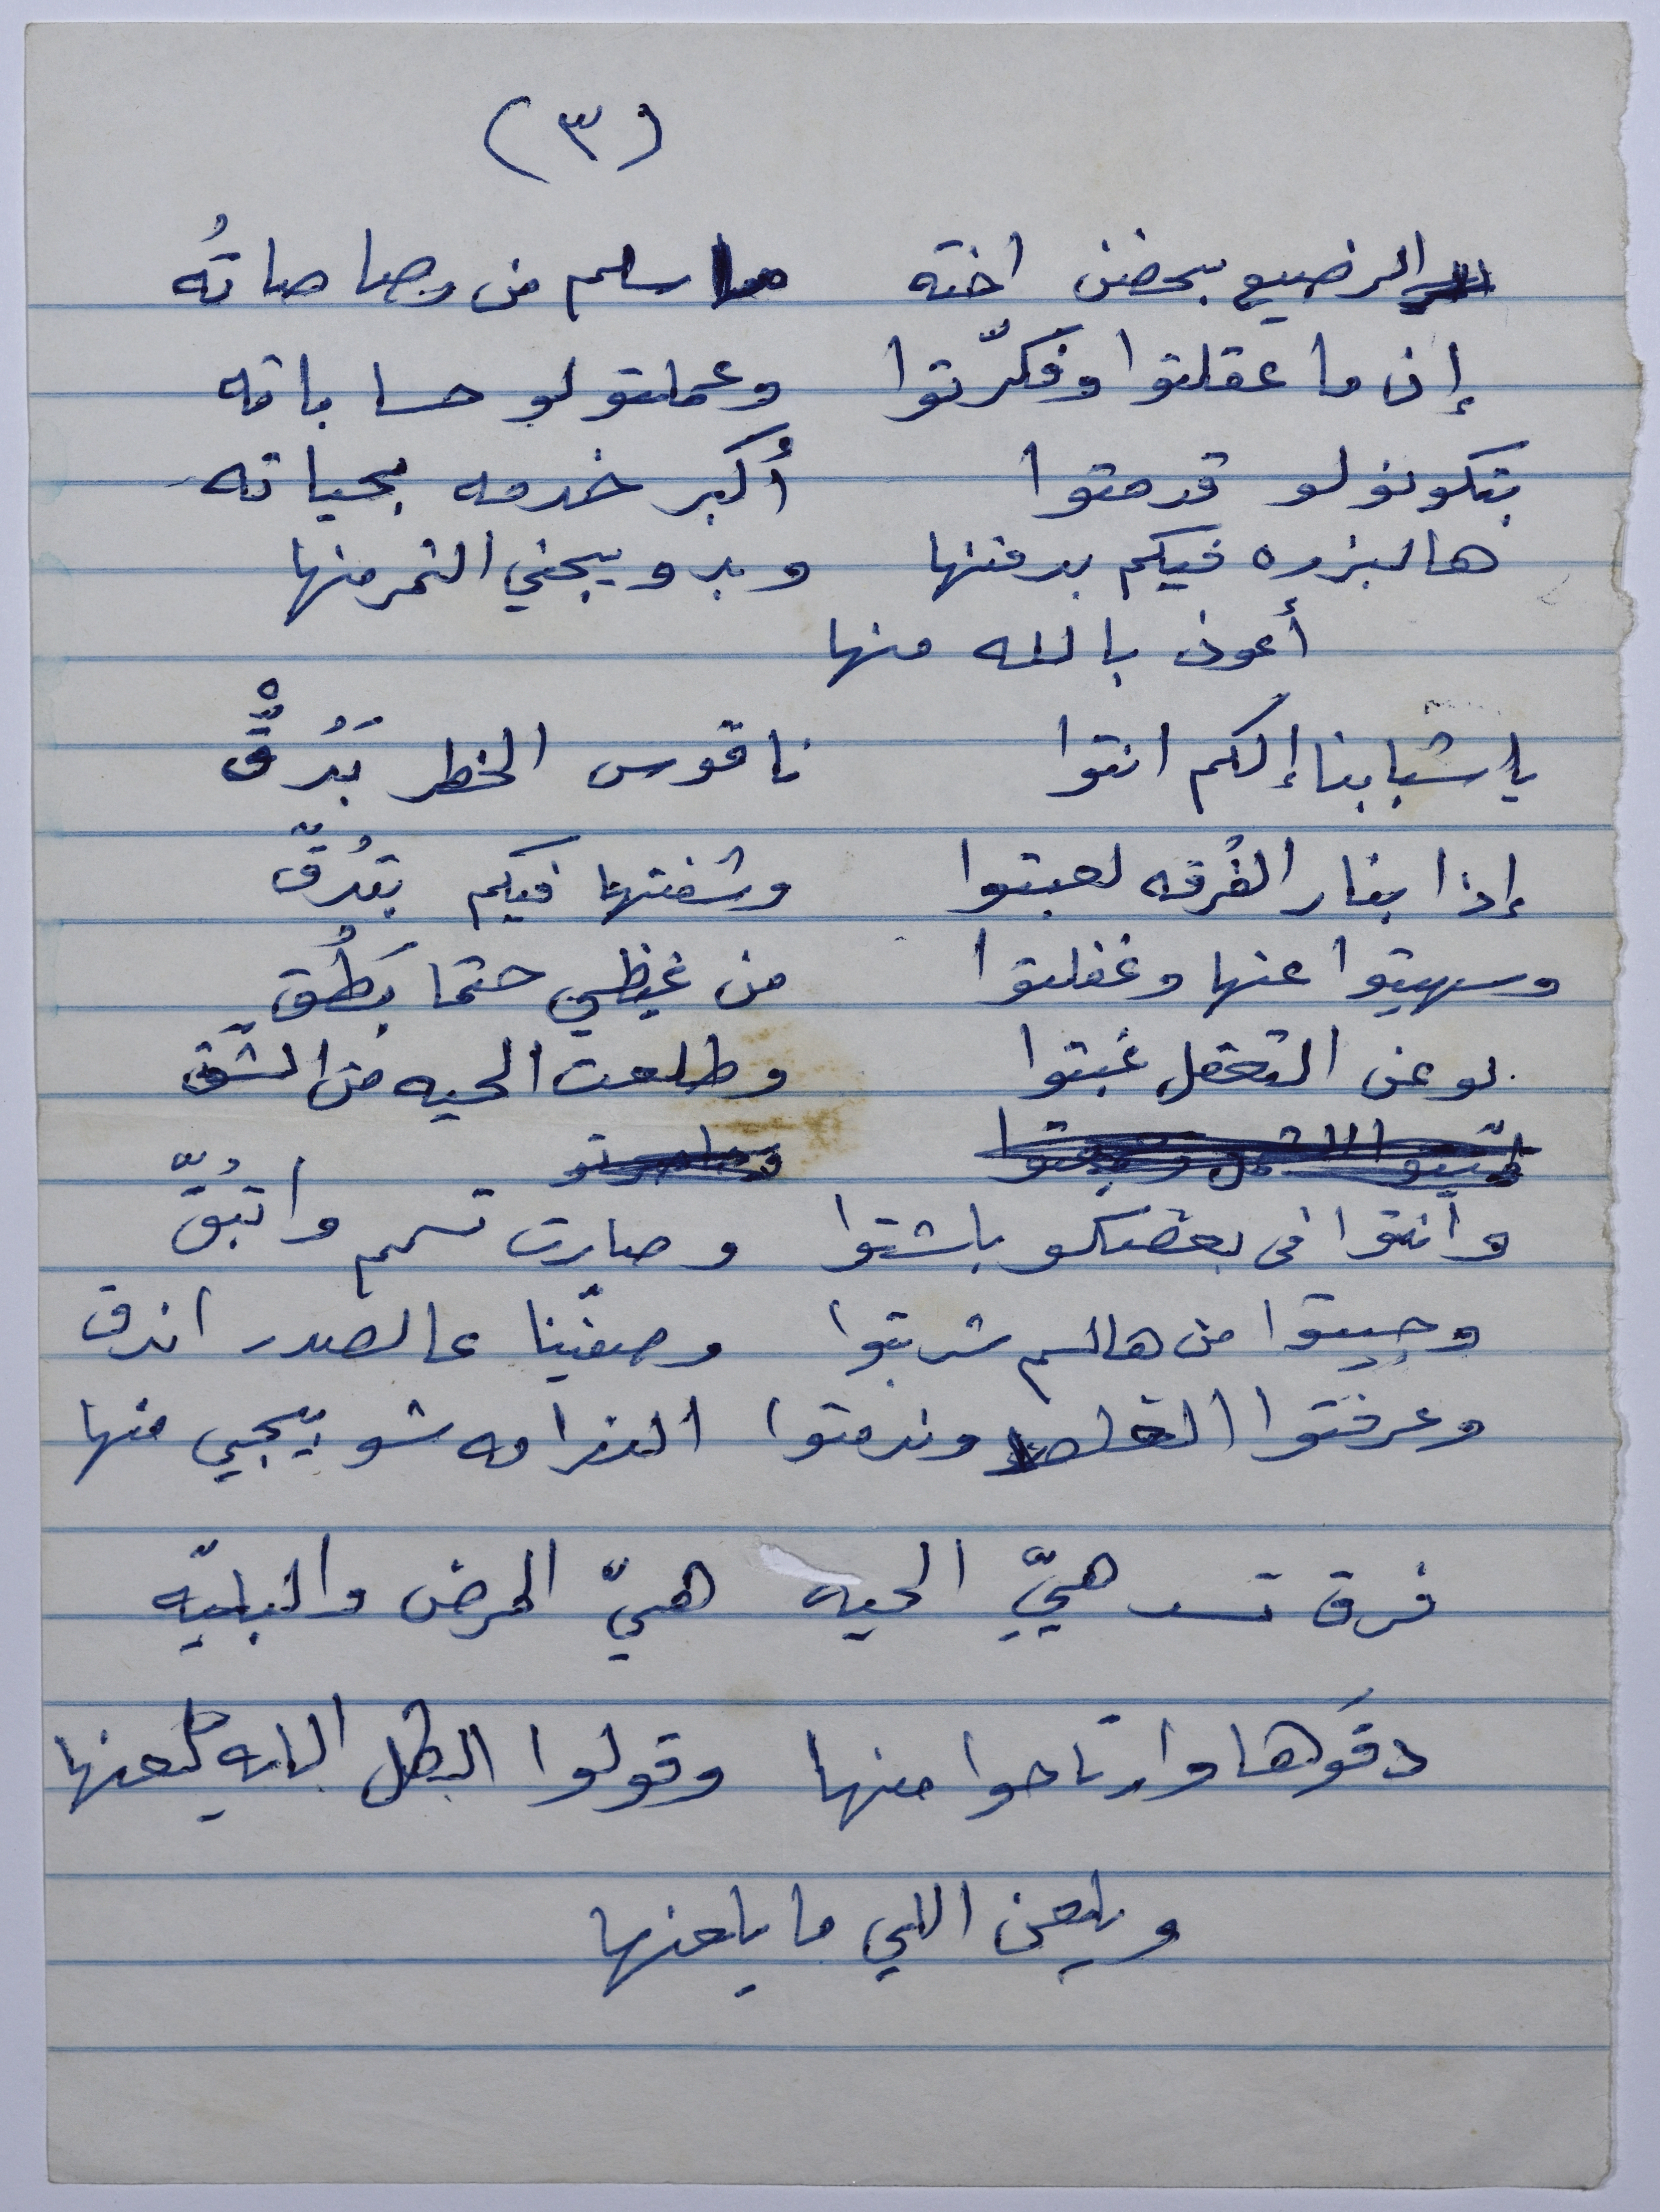 (٣)
الرضيع بحضن اخته ما سلم من رصاصاتُه
إن ما عقلتوا وفكّرتوا وعملتو لو حساباته
بتكونو لو قدمتوا أكبر خدمه بحياته
هالبزره فيكم بدفنها وبدو يجني الثمر منها
أعوذ بالله منها
يا شبابنا إلكم انتوا ناقوس الخطر بَدُقّْ
إذا بنار الفُرقه لعبتوا وشفتها فيكم بتدُقّ
وسهيتوا عنها وغفلتوا من غيظي حتما بَطُق
لو عن التعقل غبتوا وطلعت الحيه من الشّق
وانتوا في بعضكو باشتوا وصارت تسمم واتبُقّ
وجيتوا من هالسم شربتوا وصفّينا عالصدر اندق
وعرفتوا الغلط وندمتوا الندامه شو بيجي منها
فرق تسد هيِّ الحيه هيّ المرض والبليّه
دقوها وارتاحوا منها وقولوا الكل الله يلعنها
ويلعن اللي ما يلعنها